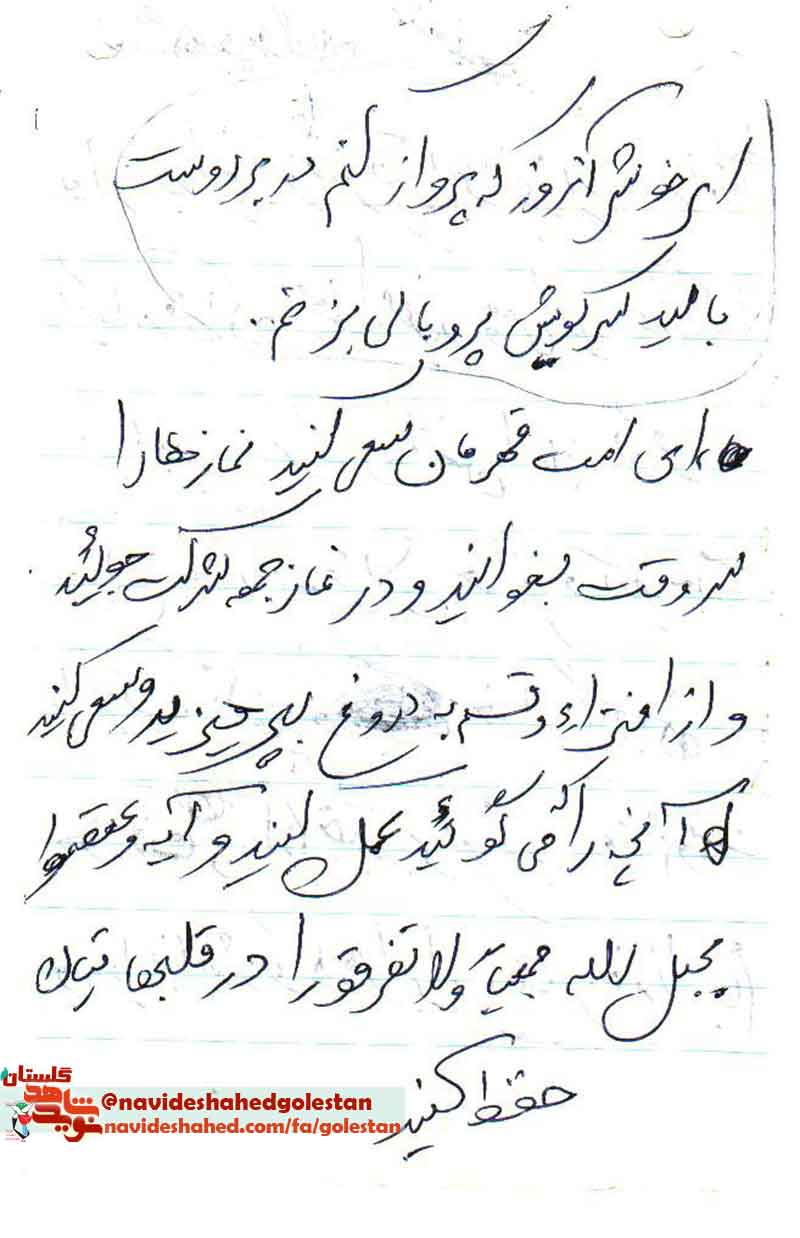 ای خوش آنروز که پرواز کنم در بر دوست
بامید سر کویش پر و بالی بزنم..
ای امت قهرمان سعی کنید نمازها را
سر وقت بخوانید و در نماز جمعه شرکت جوئید
و از افتراء و قسم به دروغ بپرهیزید و سعی کنید
آنچه را می گوئید عمل کنید و آیه وعتصموا
بحبل الله جمیعاً ولا تفرقو را در قلبهایتان
حفظ کنید
گلستان
نوید شاهد
@navideshahedgolestan
navideshahed.com/fa/golestan